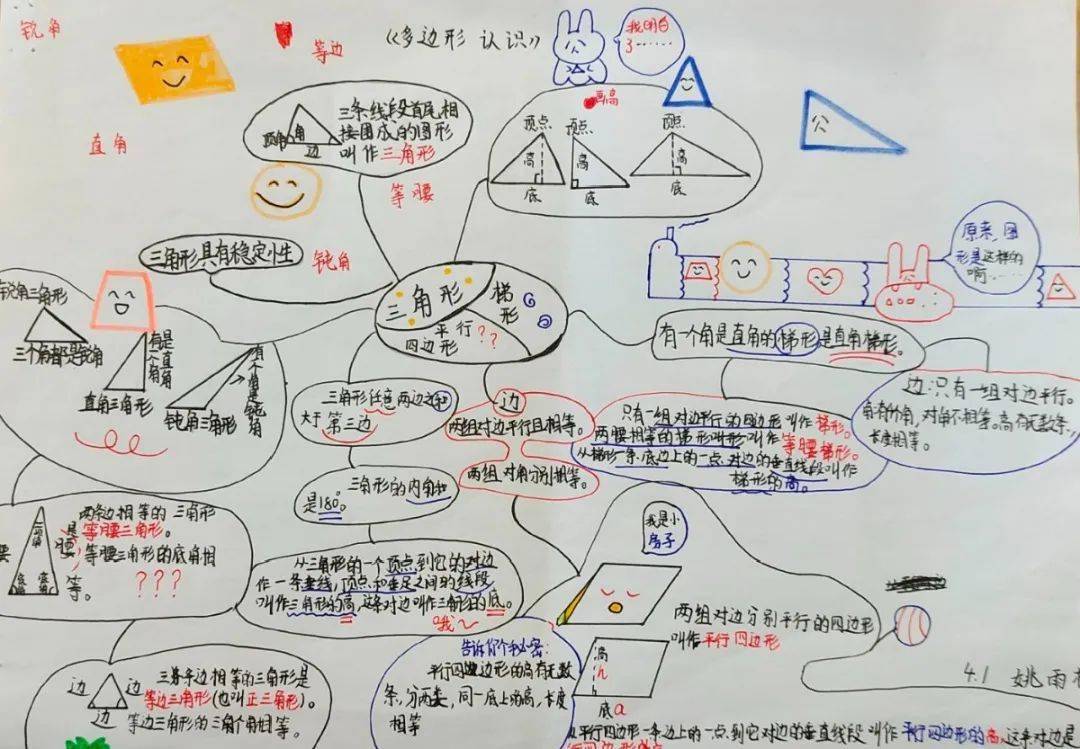 锐角
等边
《多边形 认识》
我明白
了……
直角
三条线段首尾相
接围成的图形
叫作三角形
顶角 角
边
等腰
画高
顶点 顶点 顶点
高 高 高
底 底 底
公
三角形具有稳定性
钝角
原来,图
形是这样的
啊……
三角形
梯形
平行
四边形
??
锐角三角形
三个角都是锐角
有一个角是直角
直角三角形
有一个角是钝角
钝角三角形
有一个角是直角的梯形是直角梯形。
边:只有一组对边平行。
对角不相等。高有无数条,
长度相等。
三角形任意两边之和
大于第三边
边
两组对边平行且相等。
两组对角分别相等。
只有一组对边平行的四边形叫作梯形。
两腰相等的梯形叫作等腰梯形。
从梯形一条底边上的一点,对边的垂直线段叫作
梯形的高。
三角形的内角和
是180°。
两条边相等的三角形
是等腰三角形。
等腰三角形的底角相
等。
???
腰 腰
底角 底角
从三角形的一个顶点到它的对边
作一条垂线,顶点和垂足之间的线段
叫作三角形的高,这条对边叫作三角形的底。
哦~
我是小
房子
两组对边分别平行的四边形
叫作平行四边形
高 h
底a
告诉你个秘密:
平行四边形的高有无数
条,分两类,同一底上的高,长度
相等
三条边相等的三角形是
等边三角形(也叫正三角形)。
等边三角形的三个角相等。
边 边
边
4.1 姚雨
从平行四边形一条边上的一点到它对边的垂直线段叫作平行四边形的高,这条对边是